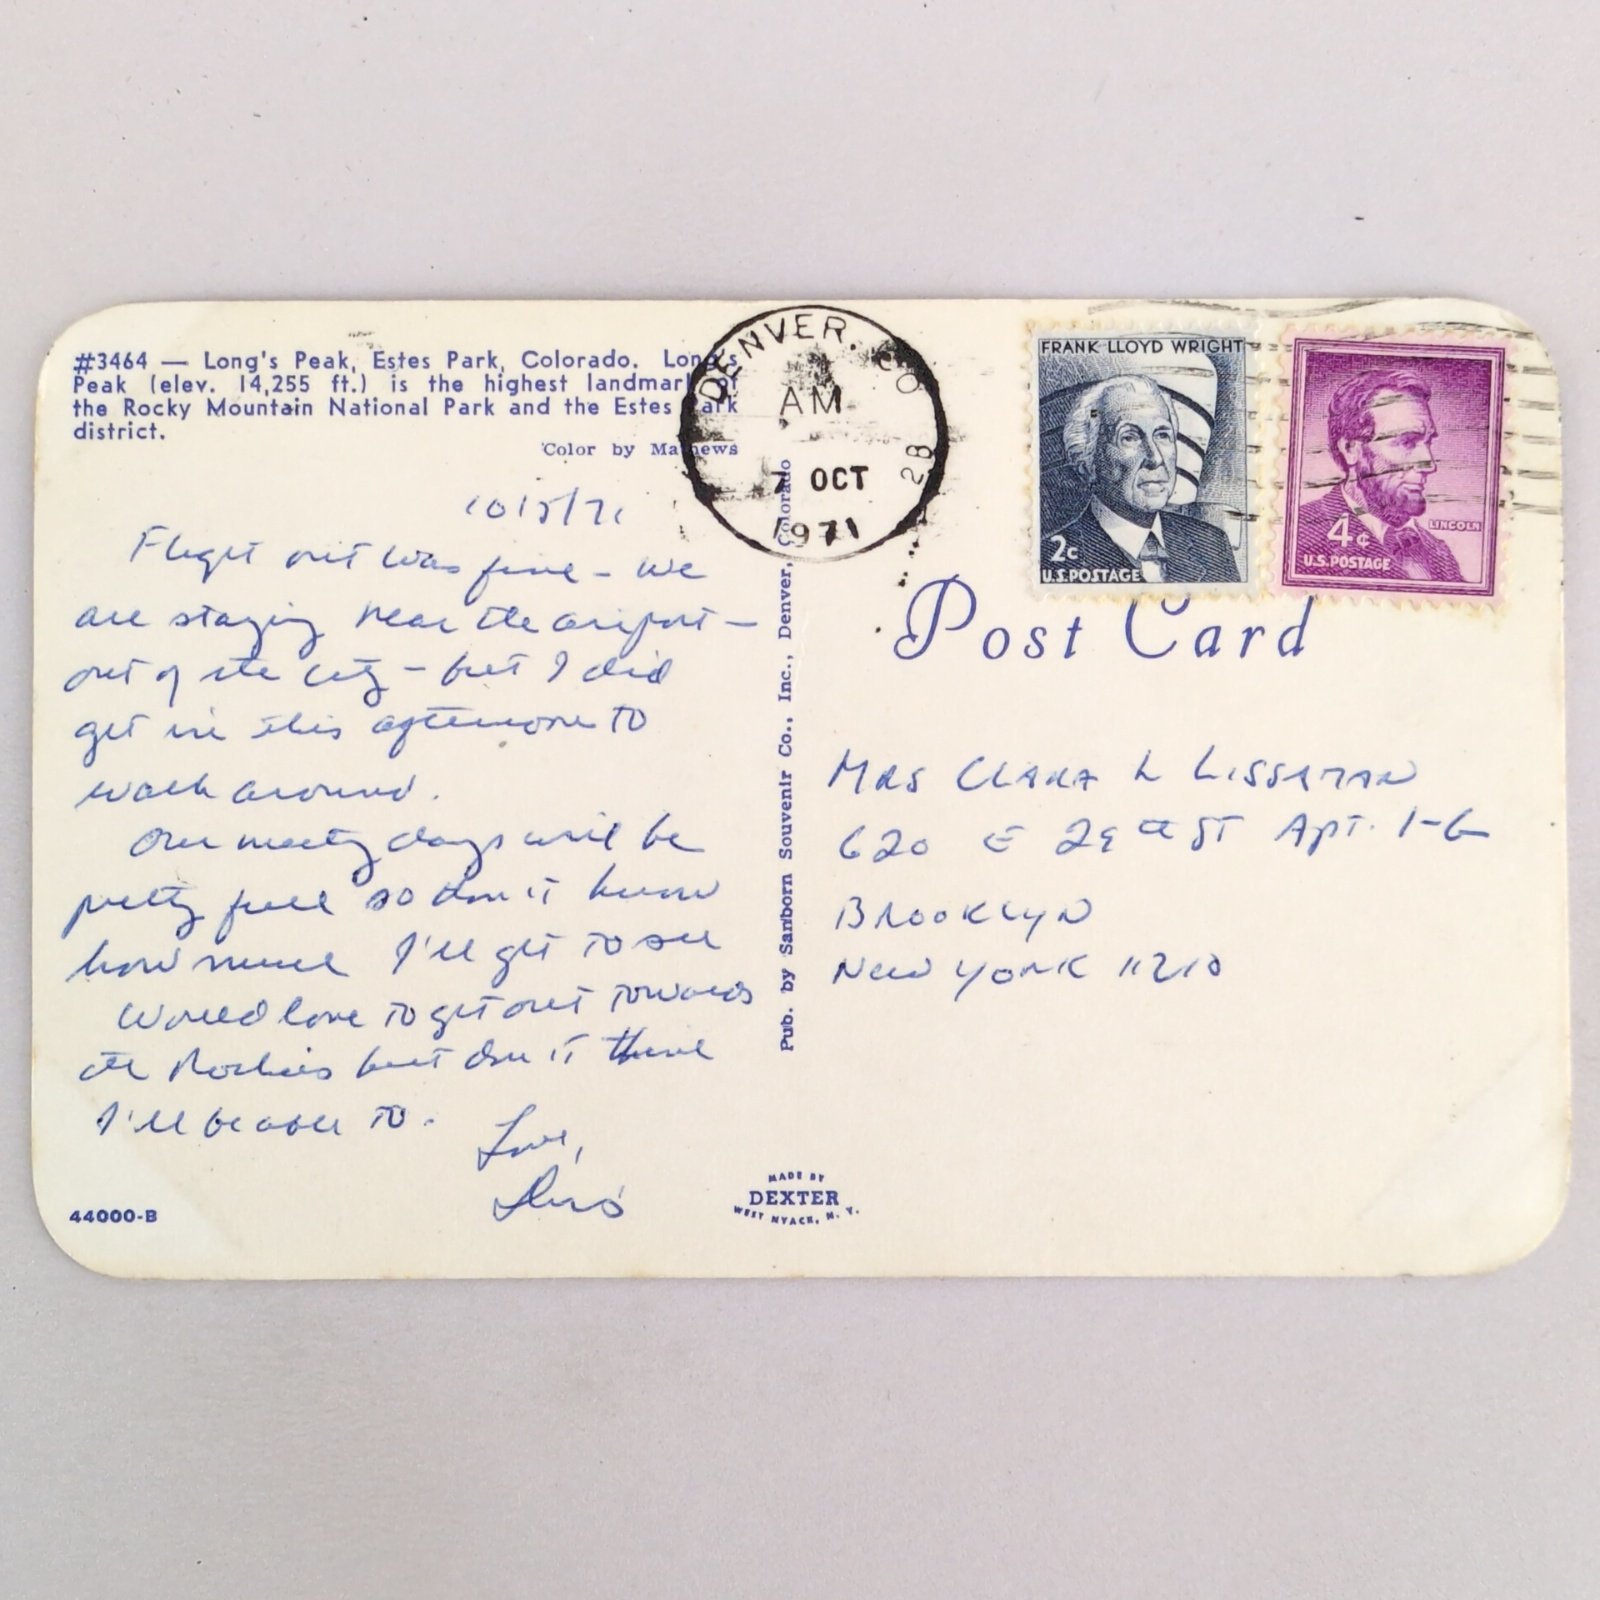 #3464 — Long's Peak, Estes Park, Colorado. Long's
Peak (elev. 14,255 ft.) is the highest landmark of
the Rocky Mountain National Park and the Estes Park
district.
Color by Mathews
10/5/71
Flight out was fine – we
are staying near the airport –
out of the city – but I did
get in this afternoon to
walk around.
Our meeting days will be
pretty full so don't know
how much I'll get to see
Would love to get out towards
the Rockies but don't think
I'll be able to.
Love,
44000-B
DENVER, CO
AM
7 OCT
1971
28
Pub. by Sanborn Souvenir Co., Inc., Denver, Colorado
MADE BY
DEXTER
WEST NYACK, N. Y.
FRANK LLOYD WRIGHT
2c
U.S. POSTAGE
4¢
LINCOLN
U.S. POSTAGE
Post Card
MRS CLARA L LISSAMAN
620 E 29th ST APT. 1-G
BROOKLYN
NEW YORK 11210